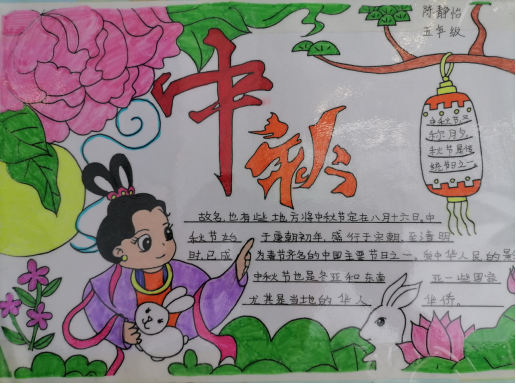 陈静怡
五年级
中秋
中秋节又
称月夕
秋节是传
统节日之一
故名,也有些地方将中秋节定在八月十六日,中
秋节始于唐朝初年,盛行于宋朝,至清明
时,已成为春节齐名的中国主要节日之一,台中华人民的
中秋节也是东亚和东南亚一些国家
尤其是当地的华人华侨。